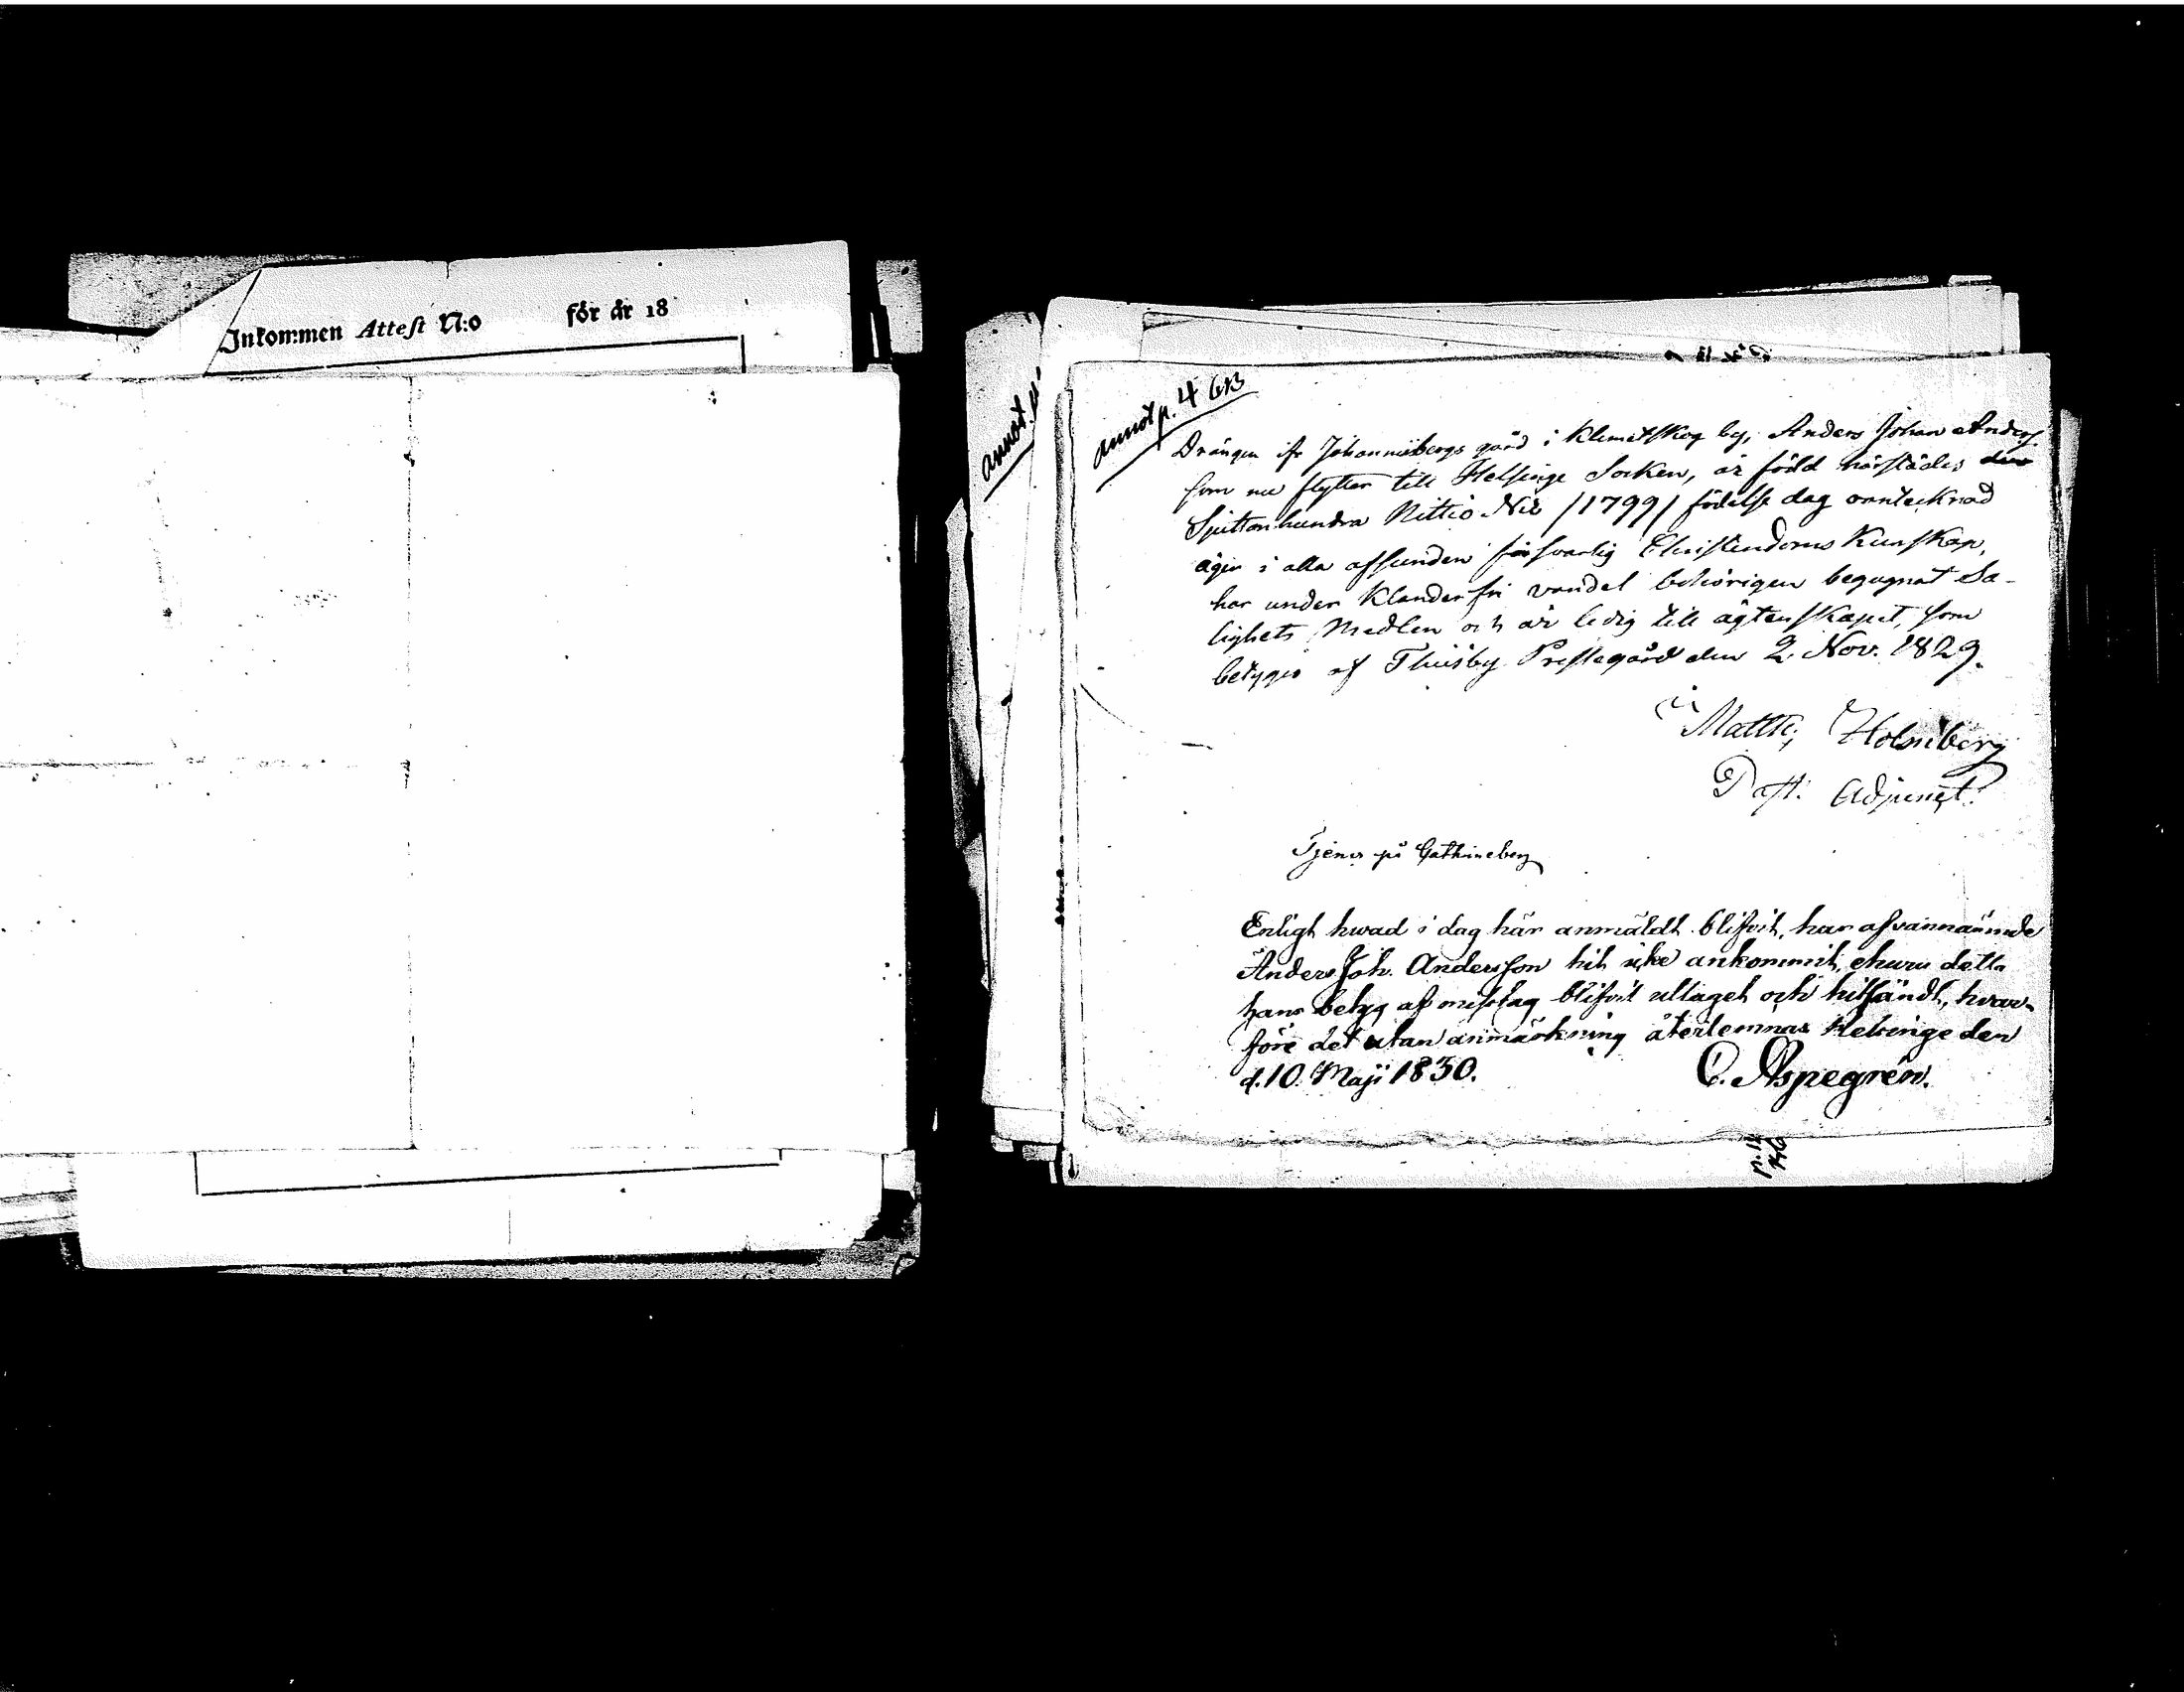 Inkommen Attest N:o för år 18
annot. p.
annot p. 4 613
Drängen ifr Johannisbergs gård i Klemetskog by, Anders Johan Anders.
som nu flyttar till Helsinge Socken, är född härstädes den
Sjuttonhundra Nittio Nio /1799/ födelse dag oantecknad
äger i alla afseenden försvarlig Christendoms Kunskap,
har under Klanderfri vandel behörigen begagnat Sa-
lighets Medlen och är ledig till ägtenskapet, som
betygas af Thusby Prestegård den 2. Nov. 1829.
Matth; Holmberg
Past. Adjunct.
Tjenar på Gathrineberg
Enligt hwad i dag här anmäldt blifvit, har ofvannämnde
Anders Joh. Andersson hit icke ankommit, ehuru detta
hans betyg af misstag blifvit uttaget och hitsändt, hvar-
före det utan anmärkning återlemnas Helsinge den
d. 10. Maji 1830. C. Aspegrén.